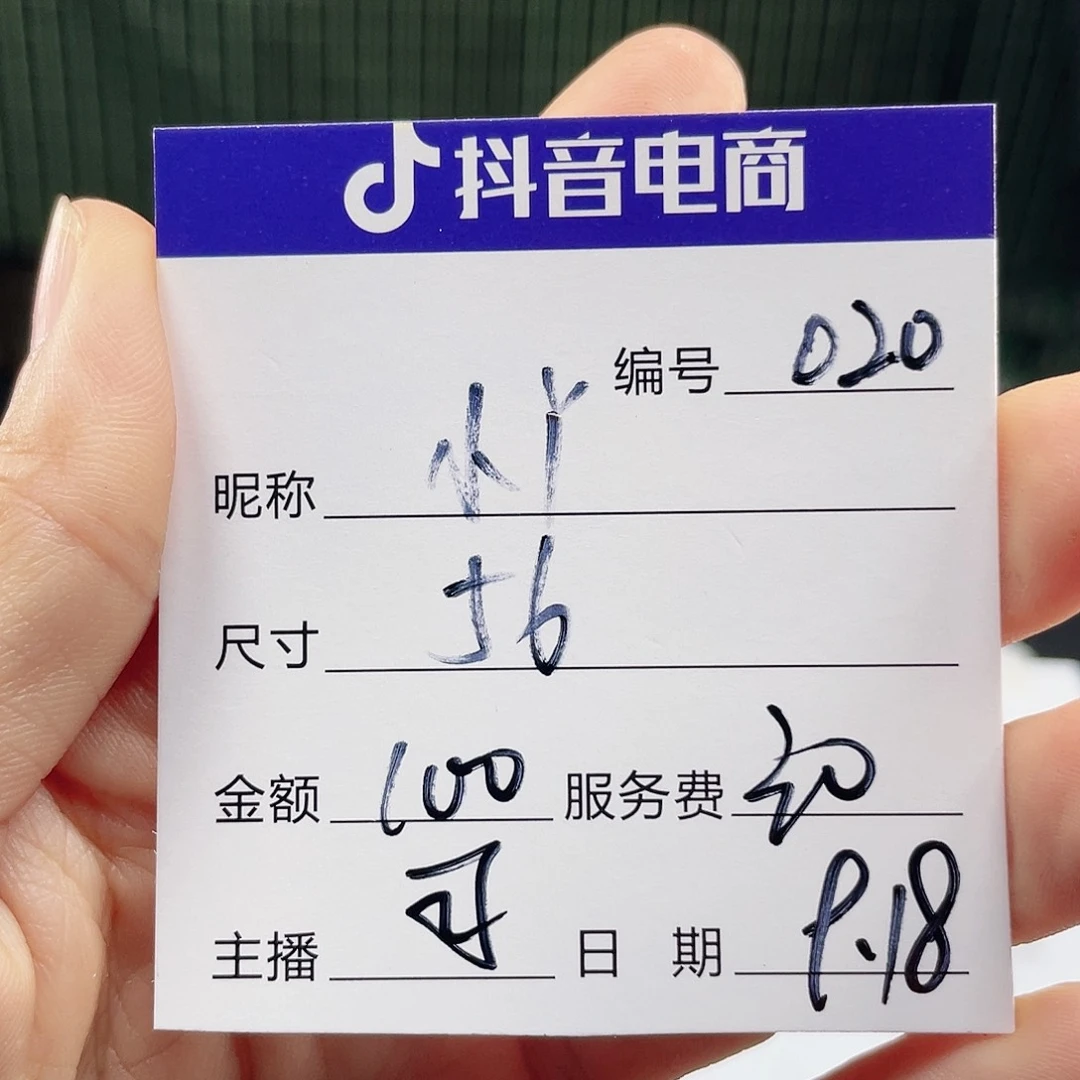 抖音电商
编号 020
昵称 水丫
尺寸 56
金额 100 服务费
主播 日期 9.18